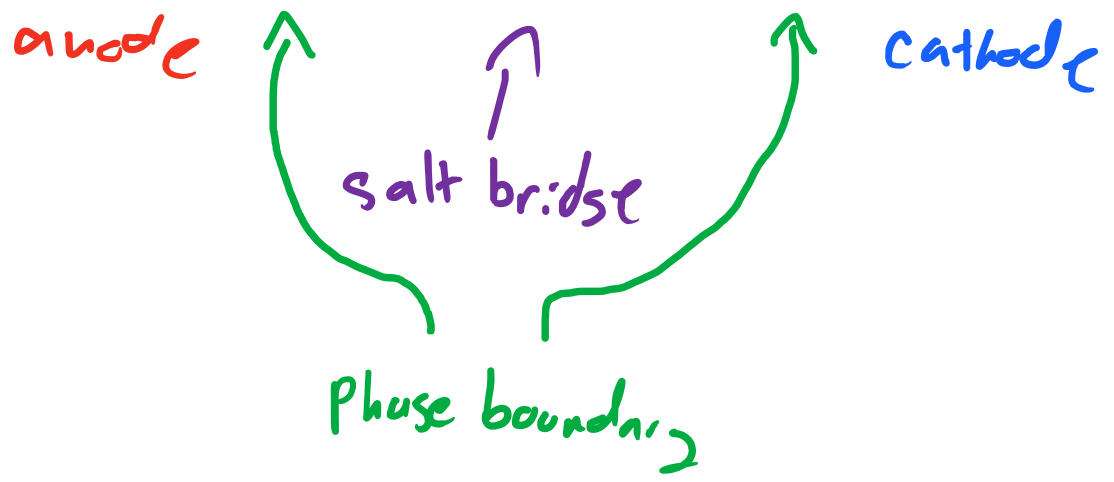 anode
cathode
salt bridge
Phase boundary